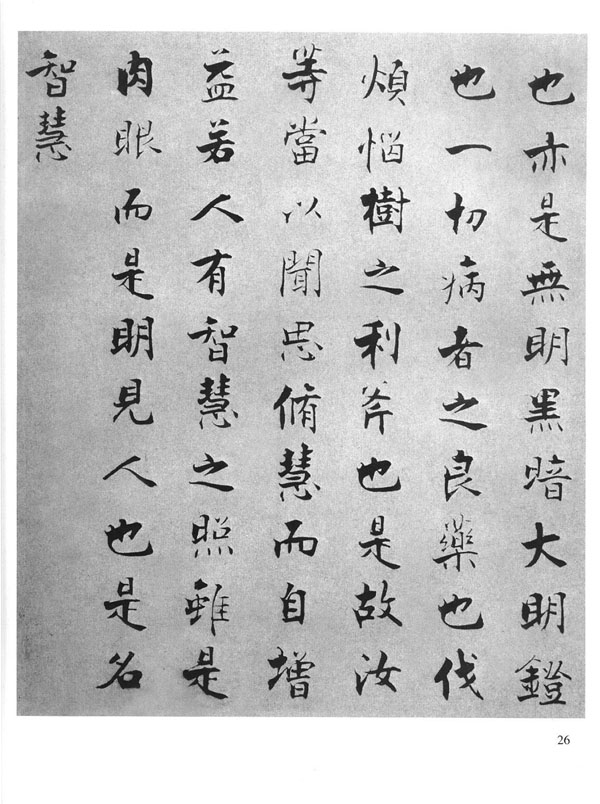 也亦是無明黑暗大明鐙
也一切病者之良藥也伐
煩惱樹之利斧也是故汝
等當以聞思脩慧而自增
益若人有智慧之照雖是
肉眼而是明見人也是名
智慧
26